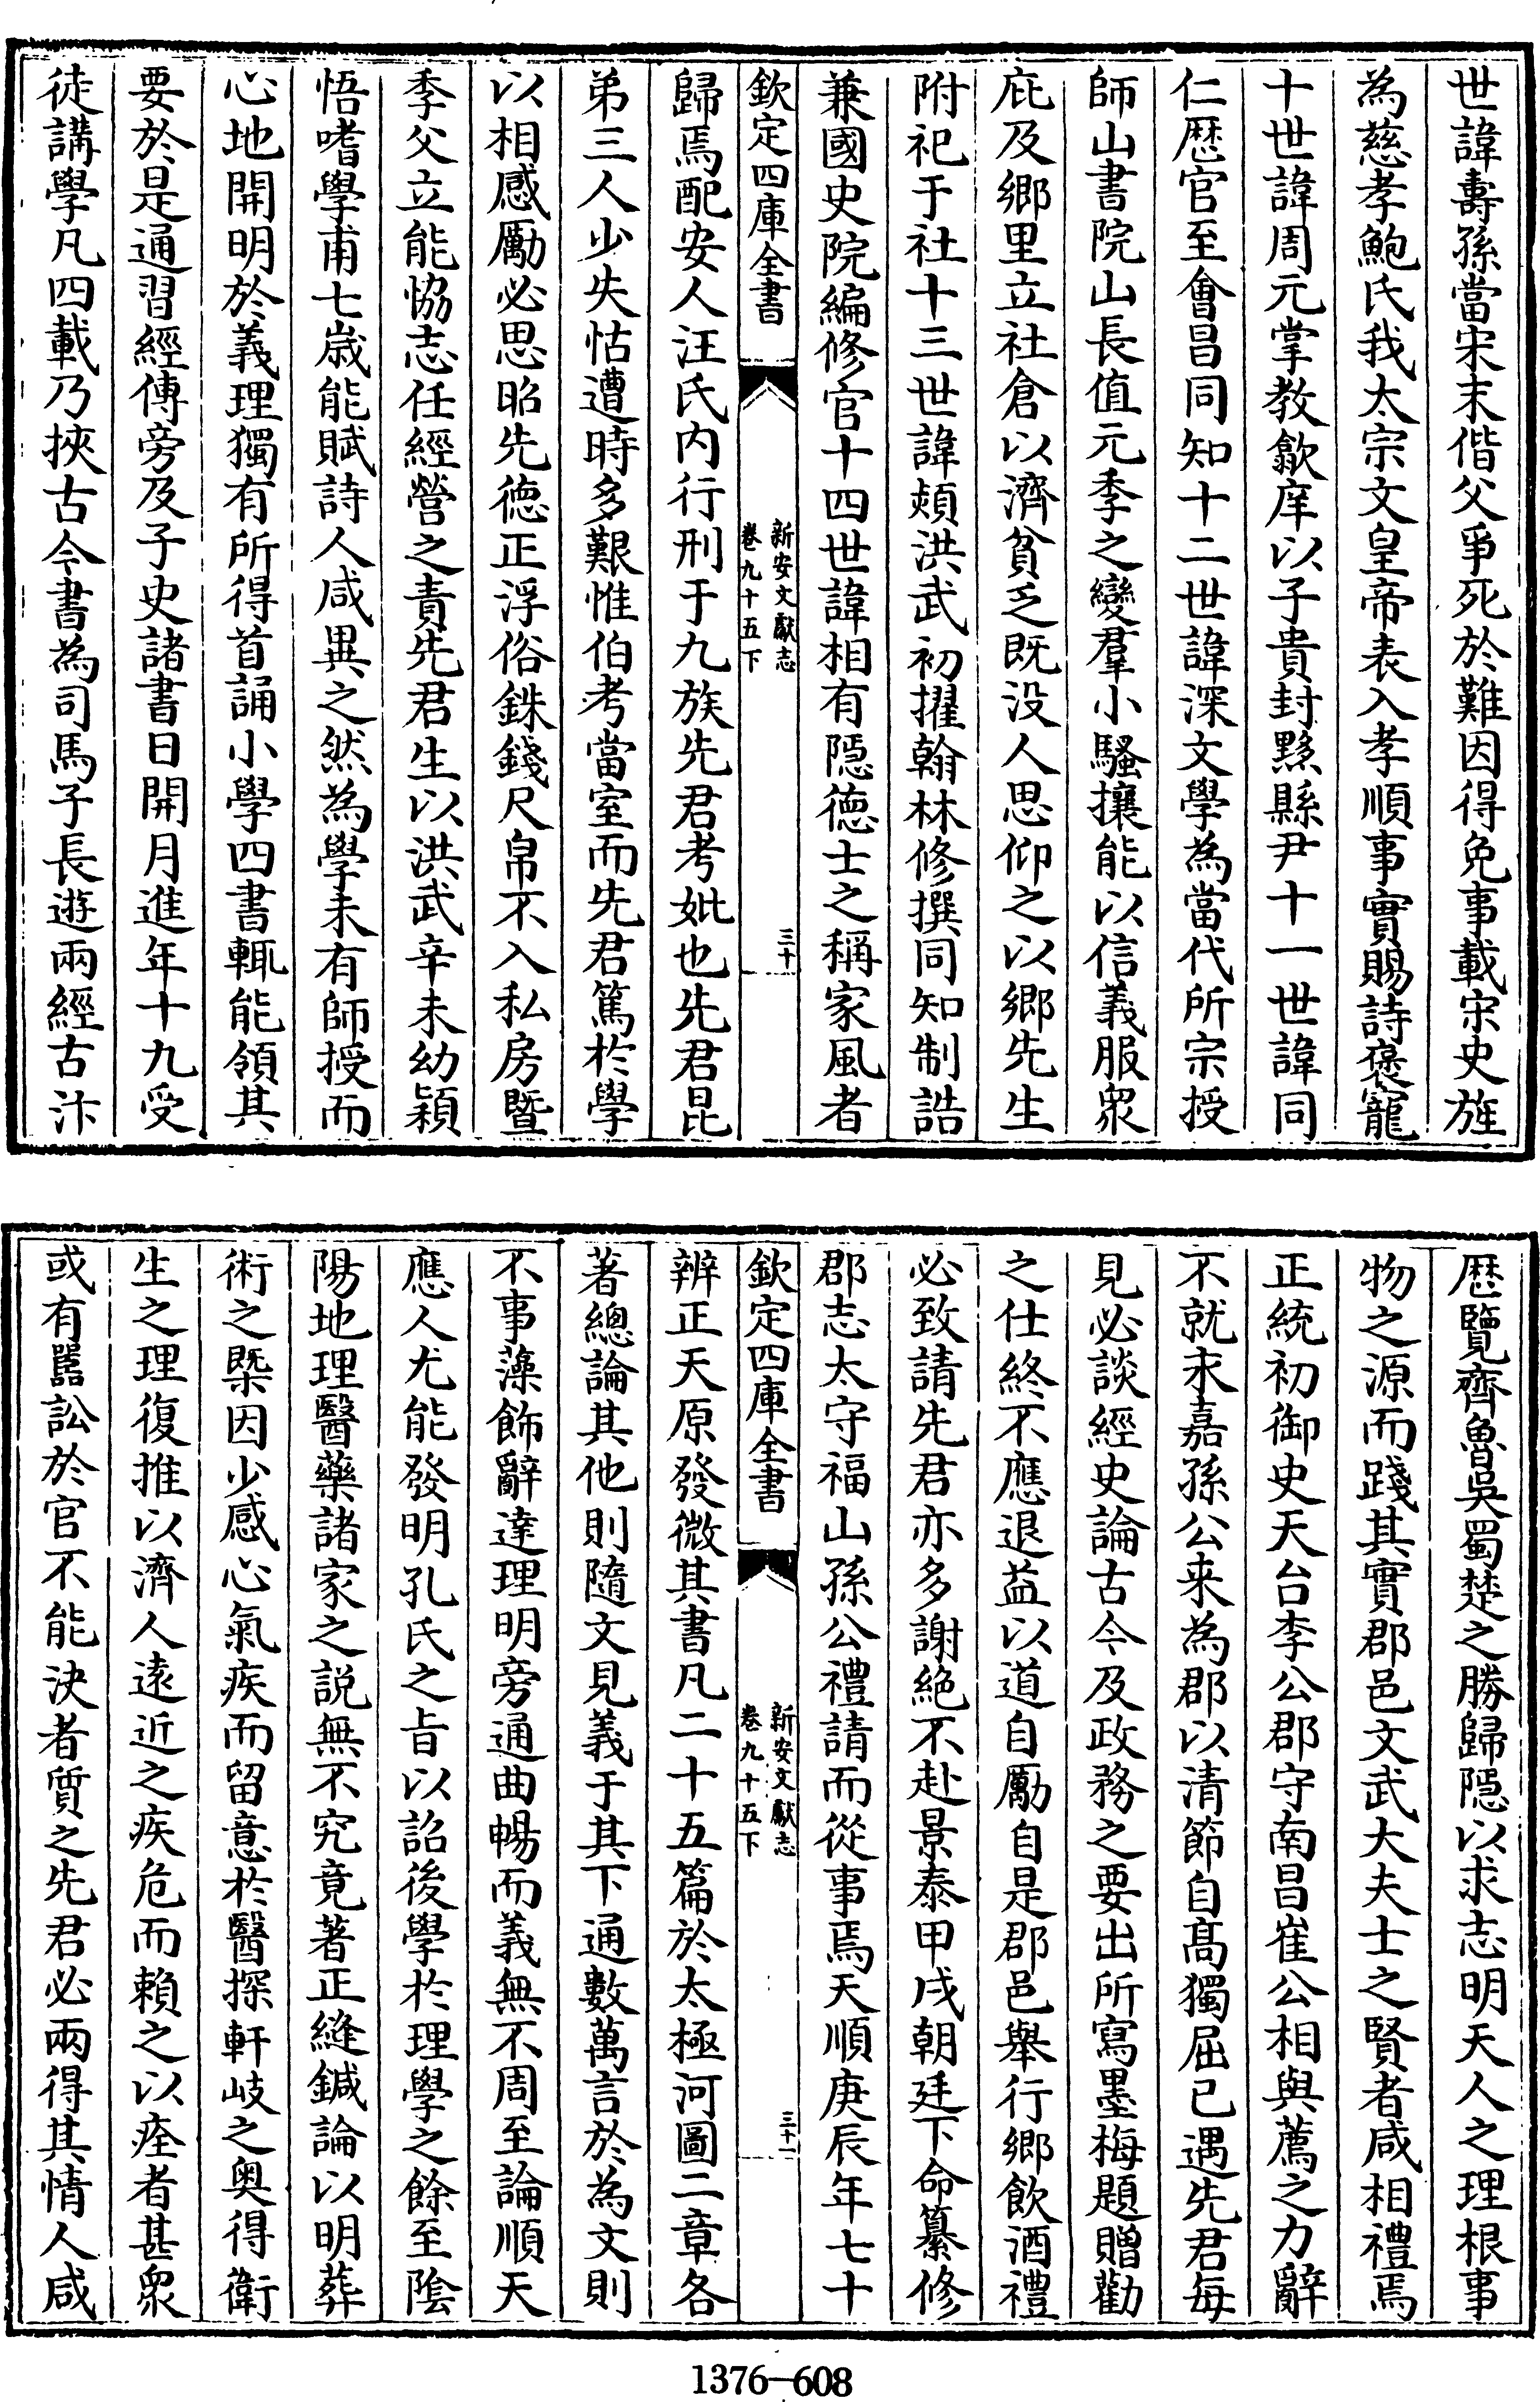 世諱壽孫當宋末偕父爭死於難因得免事載宋史旌
為慈孝鮑氏我太宗文皇帝表入孝順事實賜詩褒寵
十世諱周元掌教歙庠以子貴封黟縣尹十一世諱同
仁歴官至會昌同知十二世諱深文學為當代所宗授
師山書院山長值元季之變羣小騷攘能以信義服衆
庇及鄉里立社倉以濟貧乏既没人思仰之以鄉先生
附祀于社十三世諱頰洪武初擢翰林修撰同知制誥
兼國史院編修官十四世諱相有隠德士之稱家風者
欽定四庫全書
新安文獻志
卷九十五下
三十
歸焉配安人汪氏内行刑于九族先君考妣也先君昆
弟三人少失怙遭時多艱惟伯考當室而先君篤於學
以相感勵必思昭先德正浮俗銖錢尺帛不入私房暨
季父立能恊志任經營之責先君生以洪武辛未幼穎
悟嗜學甫七歳能賦詩人咸異之然為學未有師授而
心地開明於義理獨有所得首誦小學四書輒能領其
要於是通習經傳旁及子史諸書日開月進年十九受
徒講學凡四載乃挾古今書為司馬子長遊兩經古汴
歴覽齊魯吳蜀楚之勝歸隠以求志明天人之理根事
物之源而踐其實郡邑文武大夫士之賢者咸相禮焉
正統初御史天台李公郡守南昌崔公相與薦之力辭
不就末嘉孫公来為郡以清節自髙獨屈已遇先君每
見必談經史論古今及政務之要出所寫墨梅題贈勸
之仕終不應退益以道自勵自是郡邑舉行鄉飲酒禮
必致請先君亦多謝絶不赴景泰甲戌朝廷下命纂修
郡志太守福山孫公禮請而從事焉天順庚辰年七十
欽定四庫全書
新安文獻志
卷九十五下
三十一
辨正天原發微其書凡二十五篇於太極河圖二章各
著總論其他則隨文見義于其下通數萬言於為文則
不事藻飾辭達理明旁通曲暢而義無不周至論順天
應人尤能發明孔氏之㫖以詔後學於理學之餘至隂
陽地理醫藥諸家之説無不究竟著正縫鍼論以明葬
術之槩因少感心氣疾而留意於醫探軒岐之奥得衛
生之理復推以濟人逺近之疾危而賴之以痊者甚衆
或有嚚訟於官不能決者質之先君必兩得其情人咸
1376—608